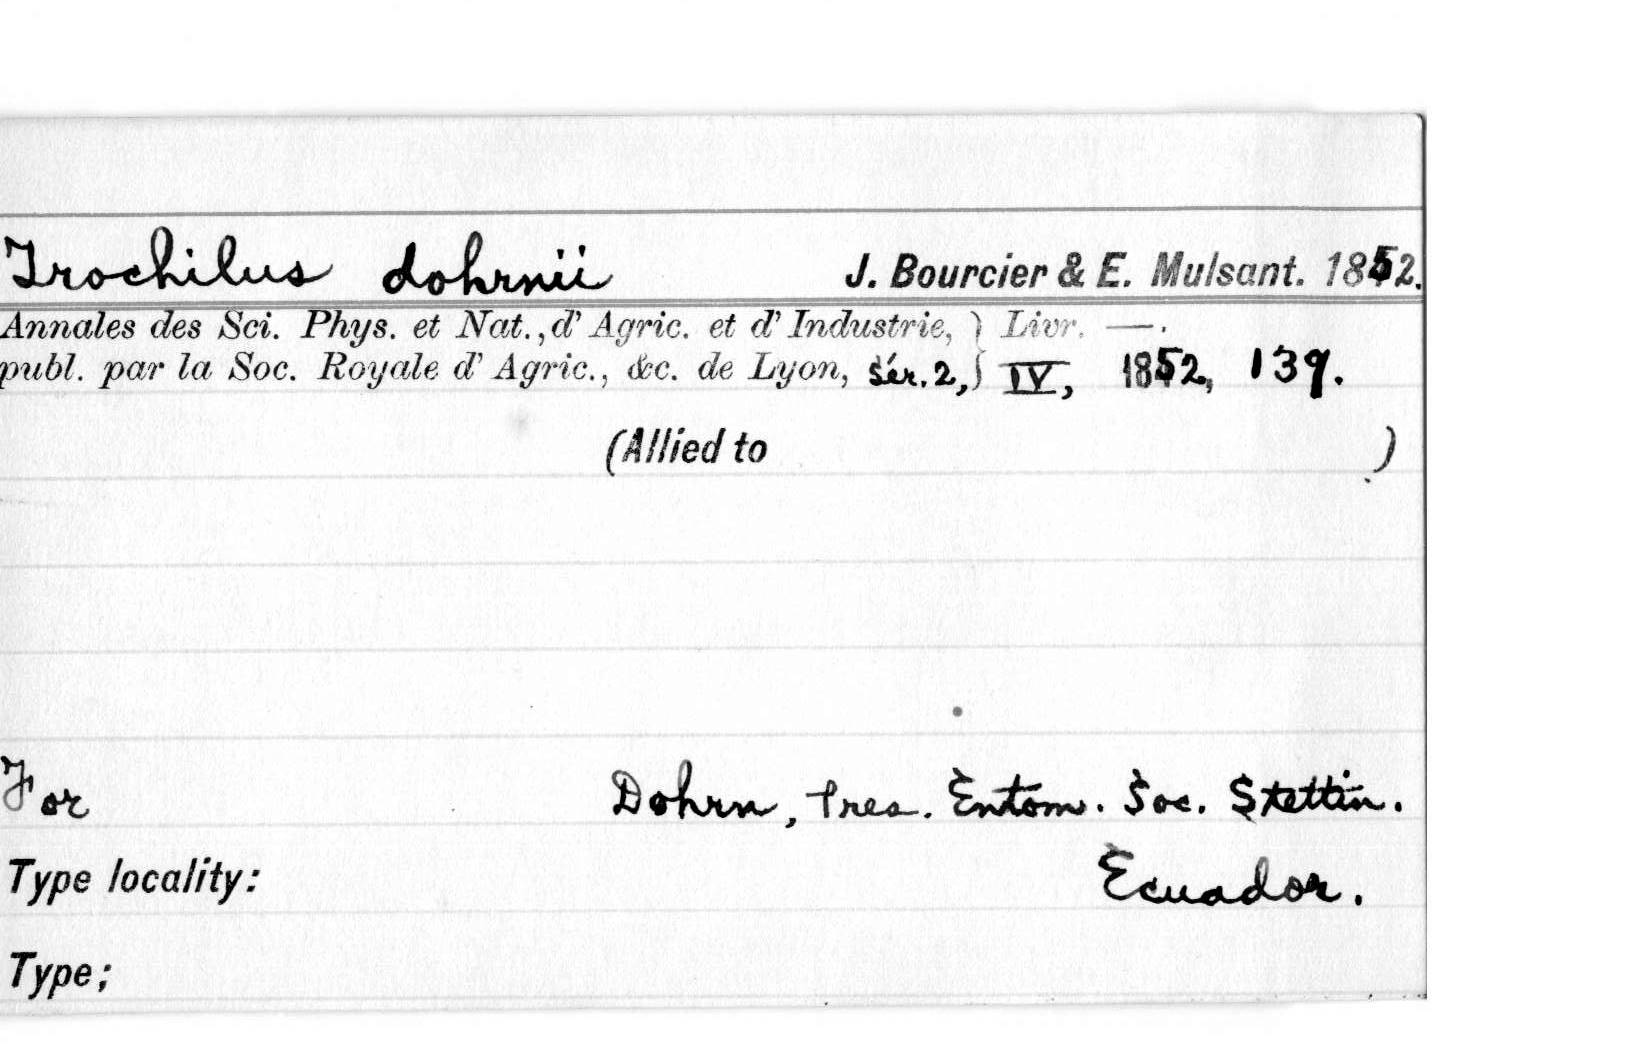 Trochilus dohrnii J. Bourcier & E. Mulsant. 1852.
Annales des Sci. Phys. et Nat., d' Agric. et d' Industrie, } Livr. —.
publ. par la Soc. Royale d' Agric., &c. de Lyon, Sér. 2, } IV, 1852, 139.
(Allied to )
For Dohrn, Pres. Entom. Soc. Stettin.
Type locality: Ecuador.
Type;